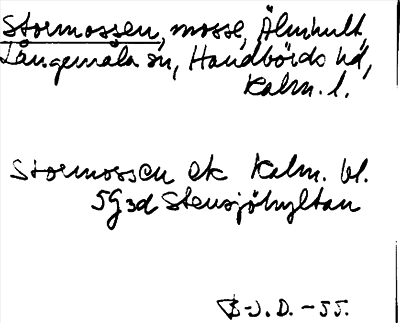 Stormossen, mosse, Älmhult,
Långemåla sn, Handbörds hd,
Kalm. l.
Stormossen ek Kalm. bl.
5G3d Stensjöhyltan
B-J.D. -55.